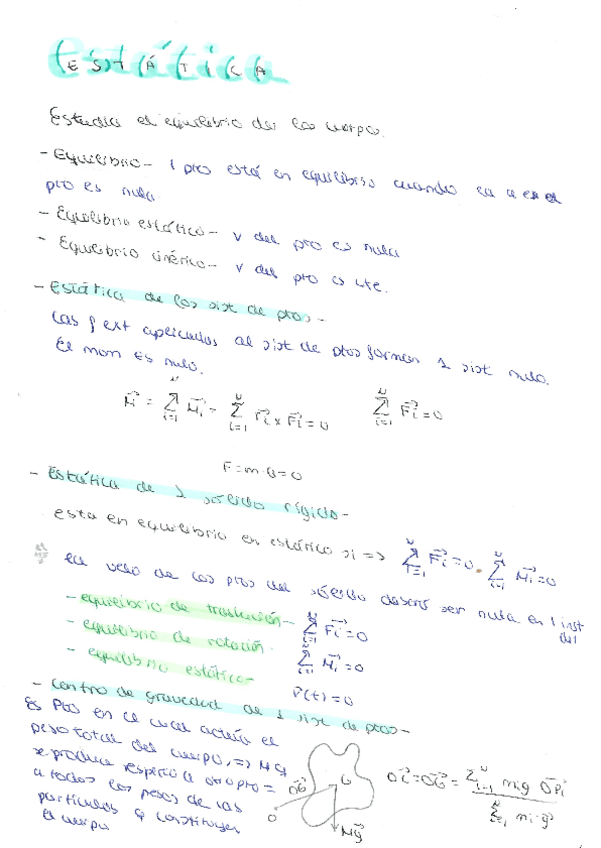 ESTÁTICA
Estudia el equilibrio de los cuerpos.
- Equilibrio - 1 pto está en equilibrio cuando la a en el
pto es nula
- Equilibrio estático - v del pto es nula
- Equilibrio cinético - v del pto es cte.
- Estática de los sist de ptos -
Las f ext aplicadas al sist de ptos forman 1 sist nulo.
El mom es nulo.
M⃗ = Σ(i=1..N) M⃗i = Σ(i=1..N) r⃗i × F⃗i = 0   Σ(i=1..N) F⃗i = 0
F = m·a = 0
- Estática de 1 sólido rígido -
esta en equilibrio en estático si => Σ(i=1..N) F⃗i = 0 . Σ(i=1..N) M⃗i = 0
la veloc de los ptos del sólido deberá ser nula en 1 inst
- equilibrio de traslación - Σ(i=1..N) F⃗i = 0
- equilibrio de rotación - Σ(i=1..N) M⃗i = 0
- equilibrio estático - P(t) = 0
- Centro de gravedad de 1 sist de ptos -
Es Pto en el cual actúa el
peso total del cuerpo, => M⃗G
se produce respecto a otro pto =
a todos los pesos de las
partículas q constituyen
el cuerpo
OG⃗ G
O
Mg⃗
OC⃗ = OG⃗ = Σ(i=1..N) mig OPi⃗ / Σ(i=1..N) mi·g⃗